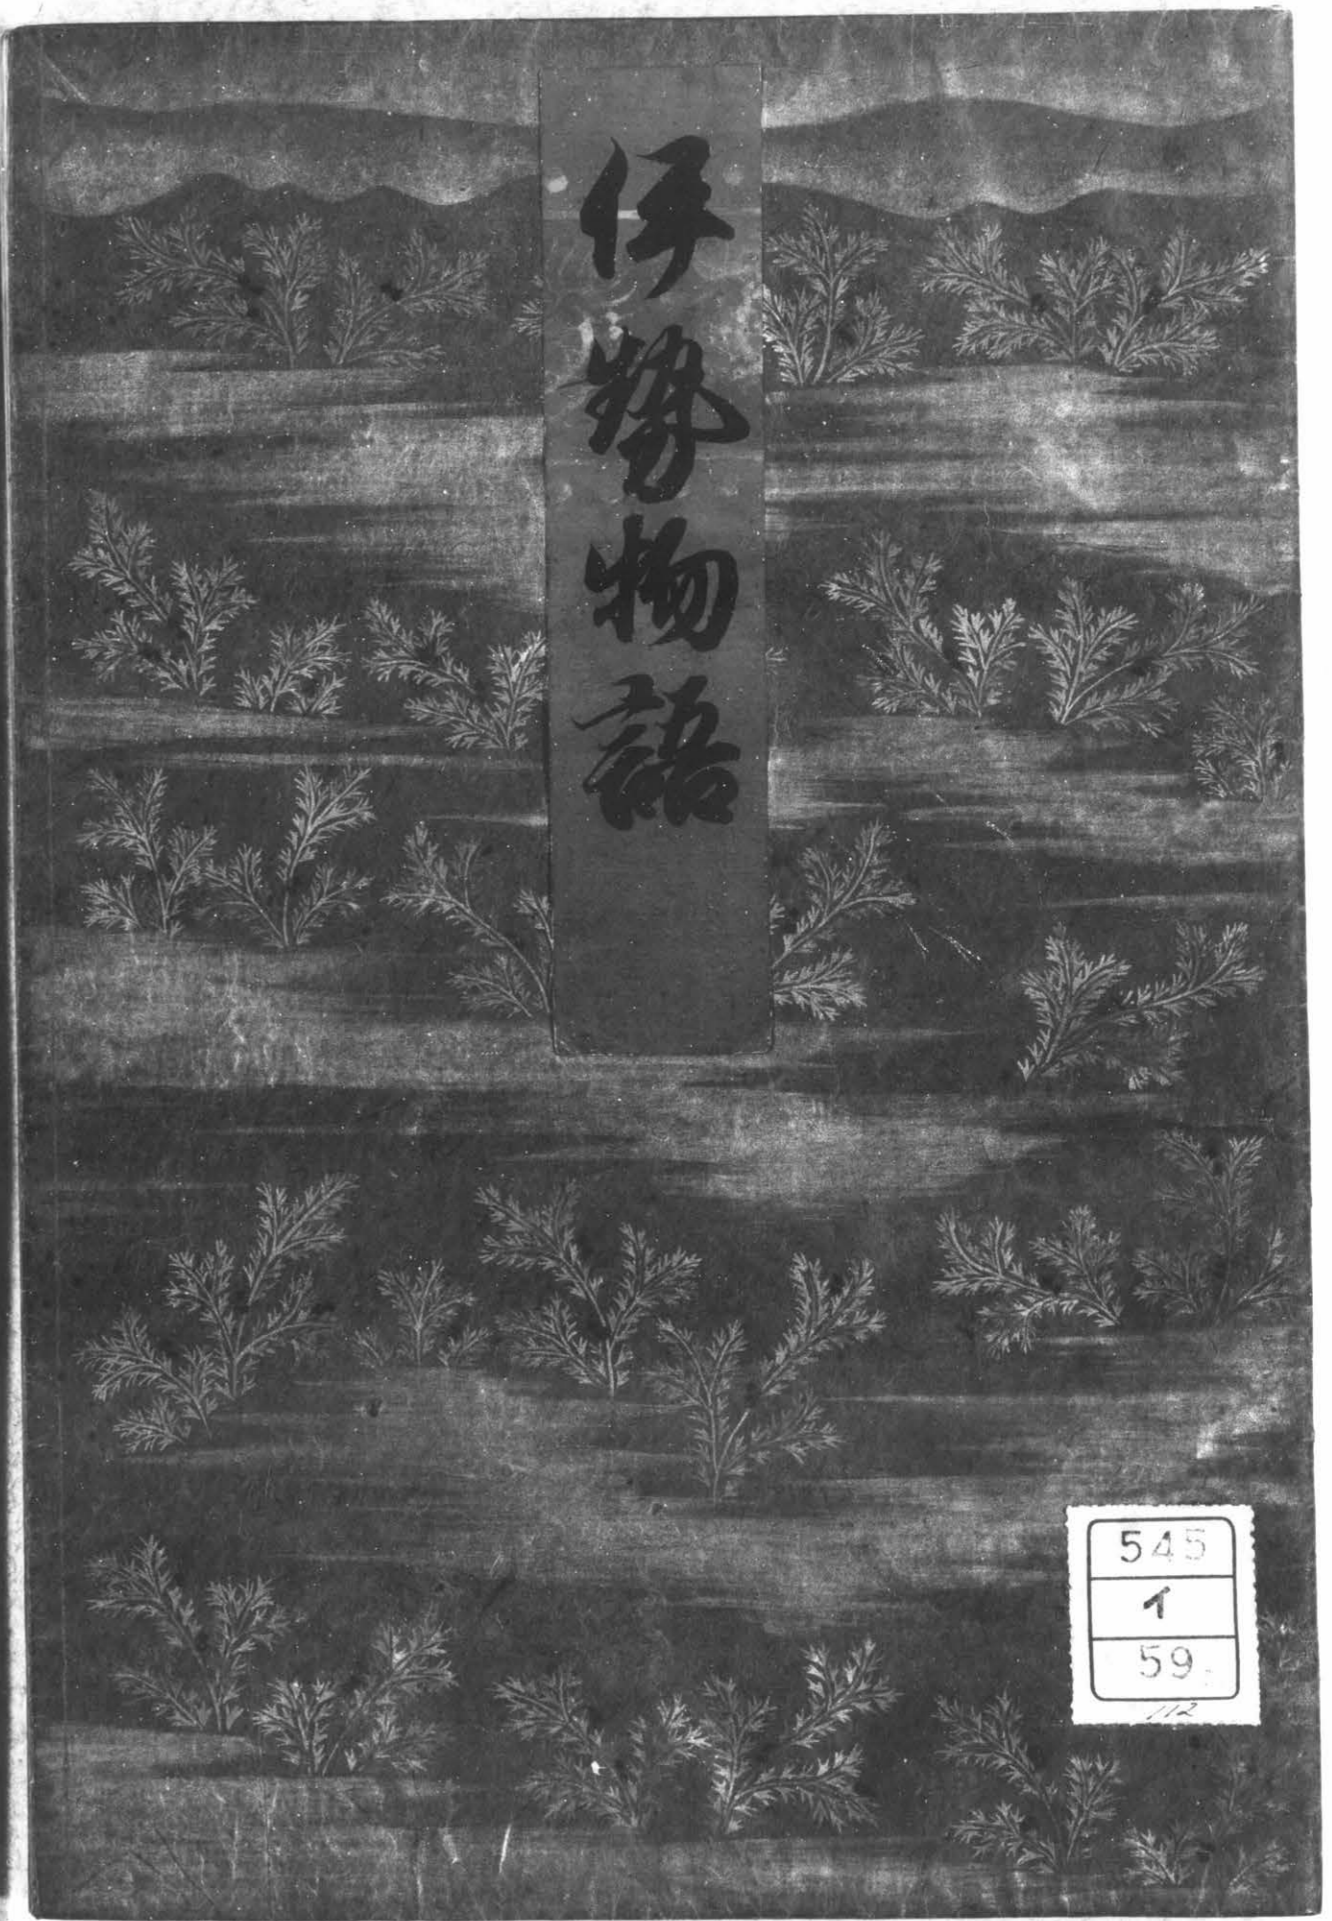 伊勢物語
545
イ
59
112